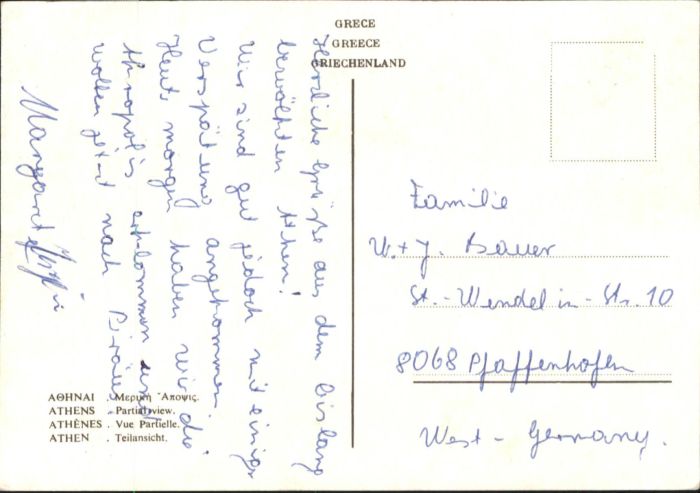 GRECE
GREECE
GRIECHENLAND
Herzliche Grüße aus dem bislang
bewölkten Athen!
Wir sind gut jedoch mit einiger
Verspätung angekommen.
Heute morgen haben wir die
Akropolis erklommen und
wollen jetzt nach Piräus.
Margaret
Familie
W. + J. Bauer
St.-Wendelin-Str. 10
8068 Pfaffenhofen
West-Germany.
ΑΘΗΝΑΙ . Μερική Ἄποψις.
ATHENS . Partial view.
ATHÈNES . Vue Partielle.
ATHEN . Teilansicht.